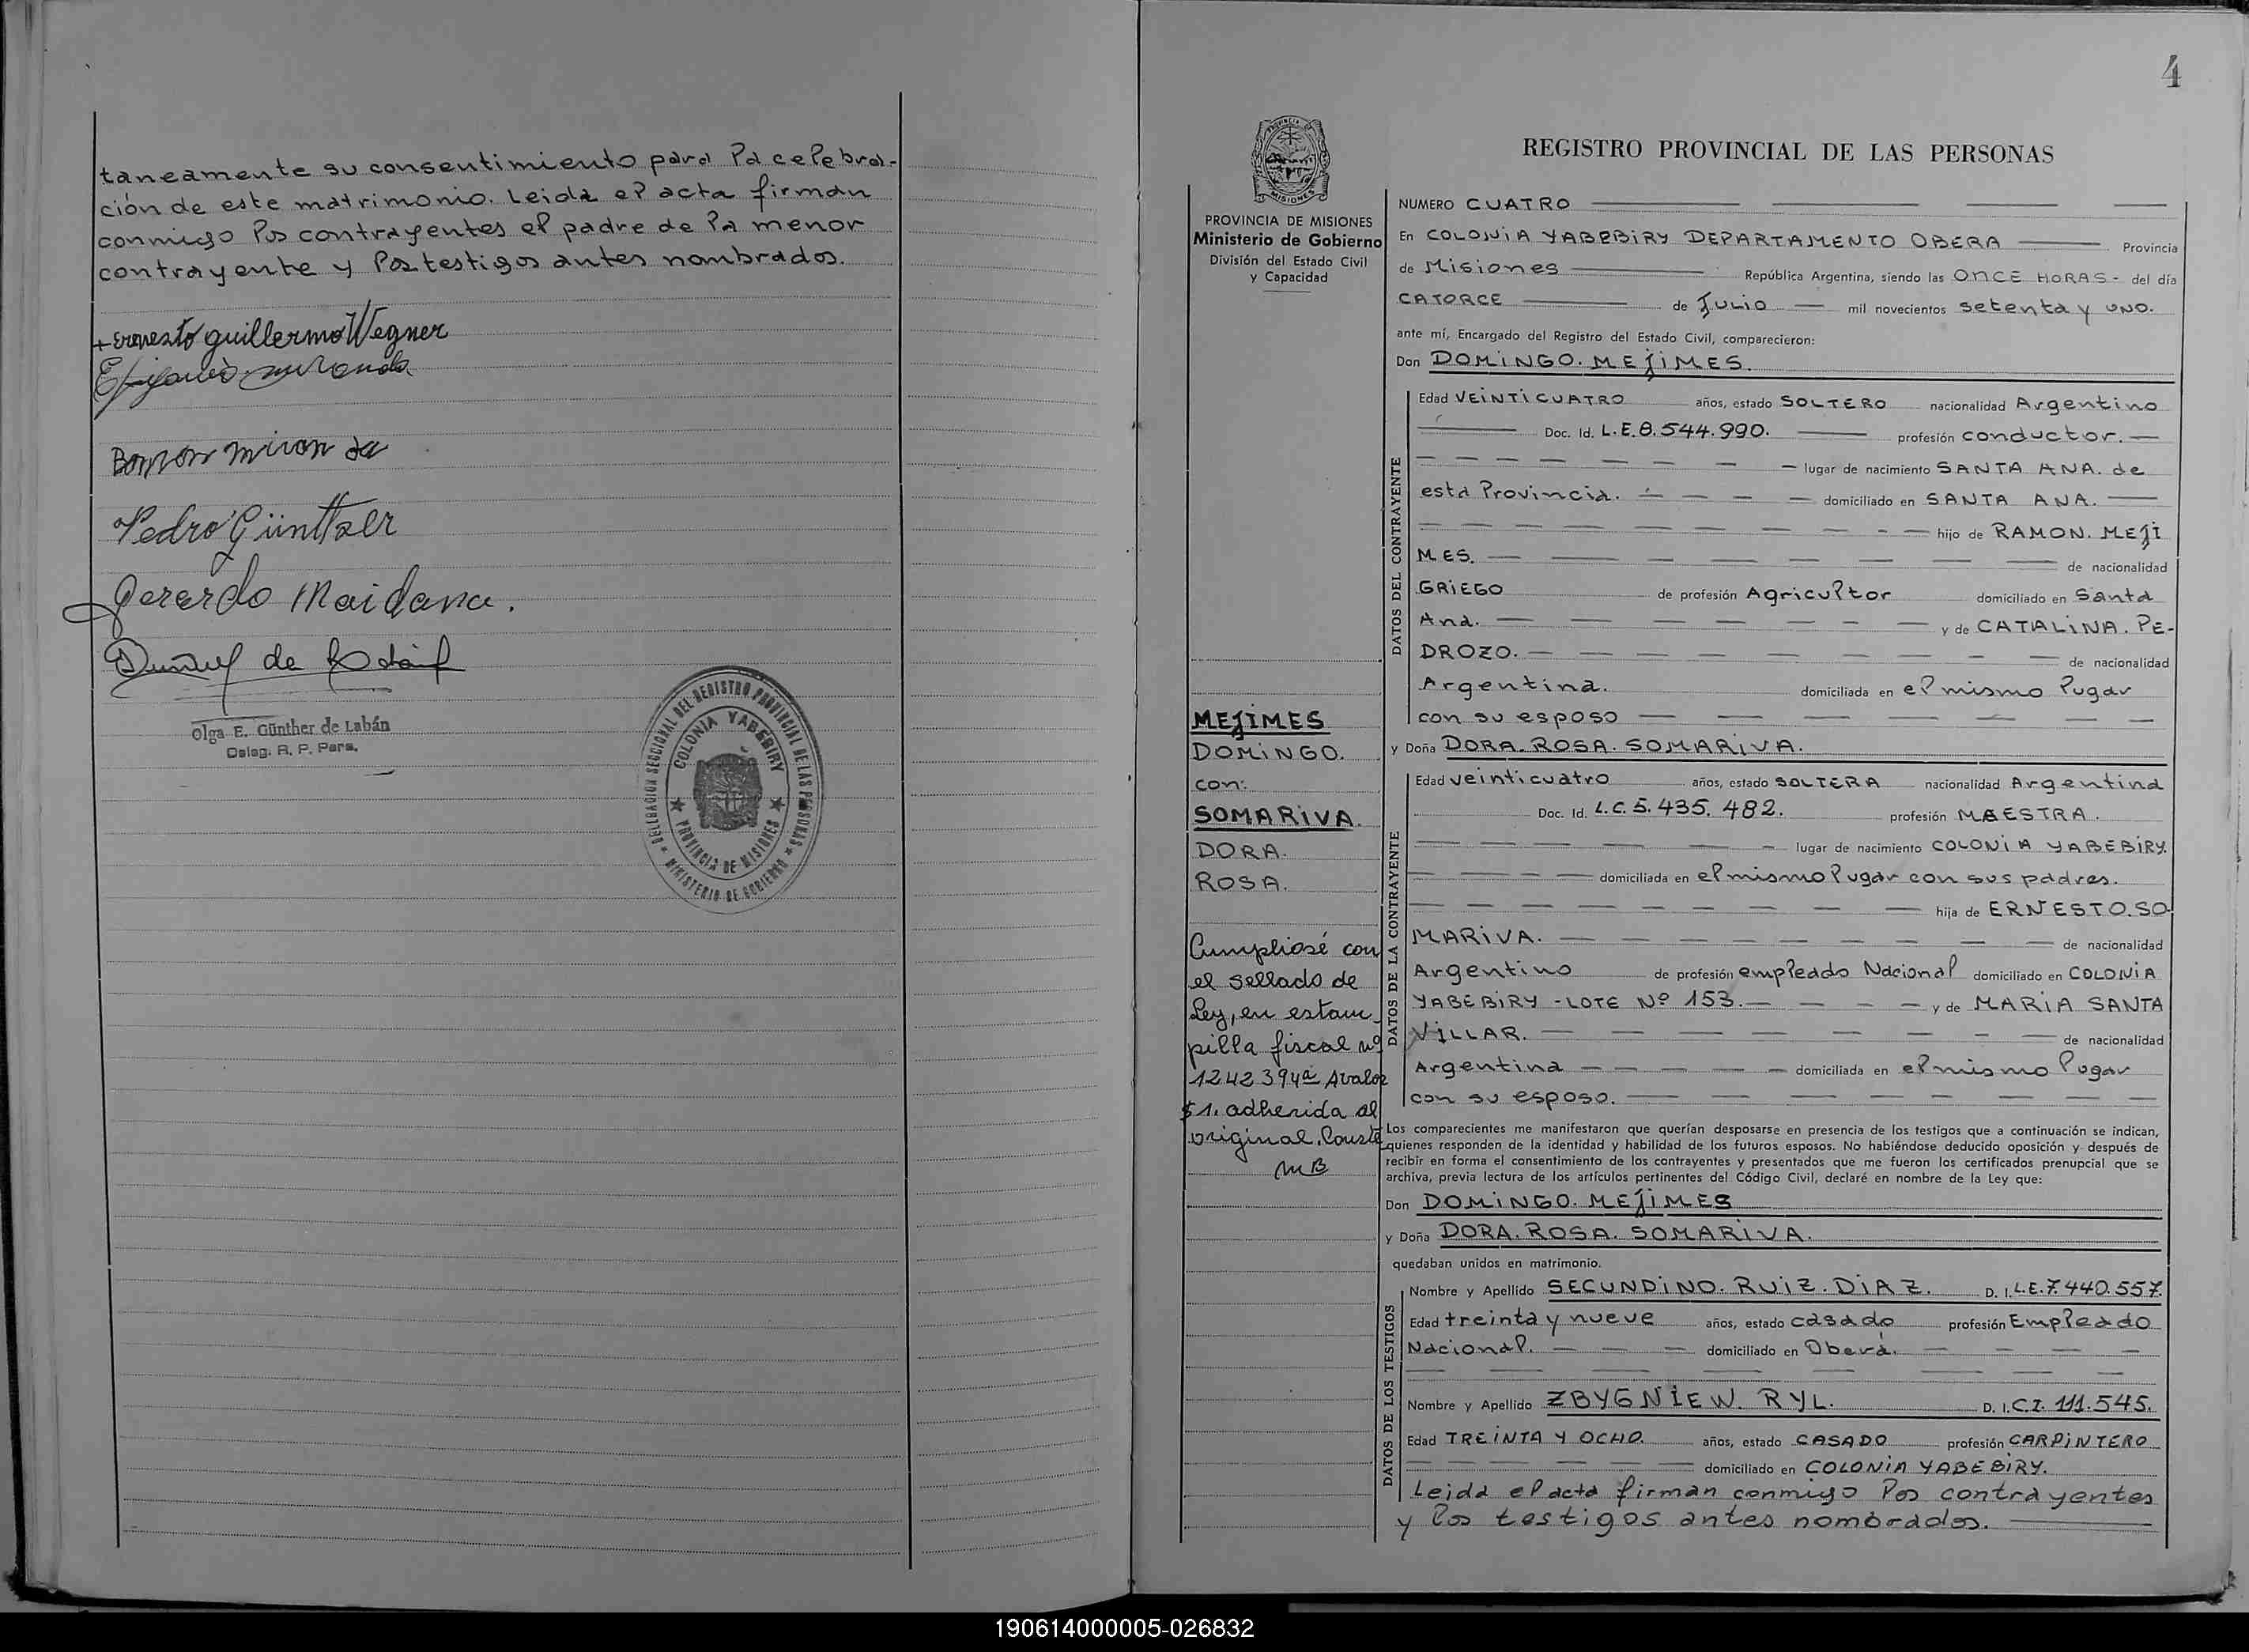 taneamente su consentimiento para la celebra-
ción de este matrimonio. Leida el acta firman
conmigo los contrayentes el padre de la menor
contrayente y los testigos antes nombrados.
+ Ernesto guillermo Wegner
Ramon miranda
Pedro Günther
Gerardo Maidana.
Olga E. Günther de Labán
Deleg. R. P. Pers.
DELEGACION SECCIONAL DEL REGISTRO PROVINCIAL DE LAS PERSONAS
COLONIA YABEBIRY
PROVINCIA DE MISIONES
MINISTERIO DE GOBIERNO
4
PROVINCIA DE MISIONES
Ministerio de Gobierno
División del Estado Civil
y Capacidad
MEJIMES
DOMINGO.
con:
SOMARIVA.
DORA.
ROSA.
Cumpliosé con
el sellado de
Ley, en estam-
pilla fiscal nº
1242394ª A valor
$1. adherida al
original. Conste
MB
REGISTRO PROVINCIAL DE LAS PERSONAS
NUMERO CUATRO
En COLONIA YABEBIRY DEPARTAMENTO OBERA Provincia
de Misiones República Argentina, siendo las ONCE HORAS - del día
CATORCE de JULIO mil novecientos setenta y uno.
ante mí, Encargado del Registro del Estado Civil, comparecieron:
Don DOMINGO. MEJIMES.
DATOS DEL CONTRAYENTE
Edad VEINTICUATRO años, estado SOLTERO nacionalidad Argentino
Doc. Id. L.E. 8.544.990. profesión conductor.
lugar de nacimiento SANTA ANA. de
esta Provincia. domiciliado en SANTA ANA.
hijo de RAMON. MEJI
MES. de nacionalidad
GRIEGO de profesión Agricultor domiciliado en Santa
Ana. y de CATALINA. PE-
DROZO. de nacionalidad
Argentina. domiciliada en el mismo lugar
con su esposo
y Doña DORA. ROSA. SOMARIVA.
DATOS DE LA CONTRAYENTE
Edad veinticuatro años, estado SOLTERA nacionalidad Argentina
Doc. Id. L.C. 5.435.482. profesión MAESTRA.
lugar de nacimiento COLONIA YABEBIRY.
domiciliada en el mismo lugar con sus padres.
hija de ERNESTO. SO-
MARIVA. de nacionalidad
Argentino de profesión empleado Nacional domiciliado en COLONIA
YABEBIRY - LOTE Nº 153. y de MARIA SANTA
VILLAR. de nacionalidad
Argentina domiciliada en el mismo lugar
con su esposo.
Los comparecientes me manifestaron que querían desposarse en presencia de los testigos que a continuación se indican,
quienes responden de la identidad y habilidad de los futuros esposos. No habiéndose deducido oposición y después de
recibir en forma el consentimiento de los contrayentes y presentados que me fueron los certificados prenupcial que se
archiva, previa lectura de los artículos pertinentes del Código Civil, declaré en nombre de la Ley que:
Don DOMINGO. MEJIMES
y Doña DORA. ROSA. SOMARIVA.
quedaban unidos en matrimonio.
DATOS DE LOS TESTIGOS
Nombre y Apellido SECUNDINO. RUIZ. DIAZ. D. I. L.E. 7.440.557.
Edad treinta y nueve años, estado casado profesión Empleado
Nacional. domiciliado en Oberá.
Nombre y Apellido ZBYGNIEW. RYL. D. I. C.I. 111.545.
Edad TREINTA Y OCHO. años, estado CASADO profesión CARPINTERO
domiciliado en COLONIA YABEBIRY.
Leida el acta firman conmigo los contrayentes
y los testigos antes nombrados.
190614000005-026832